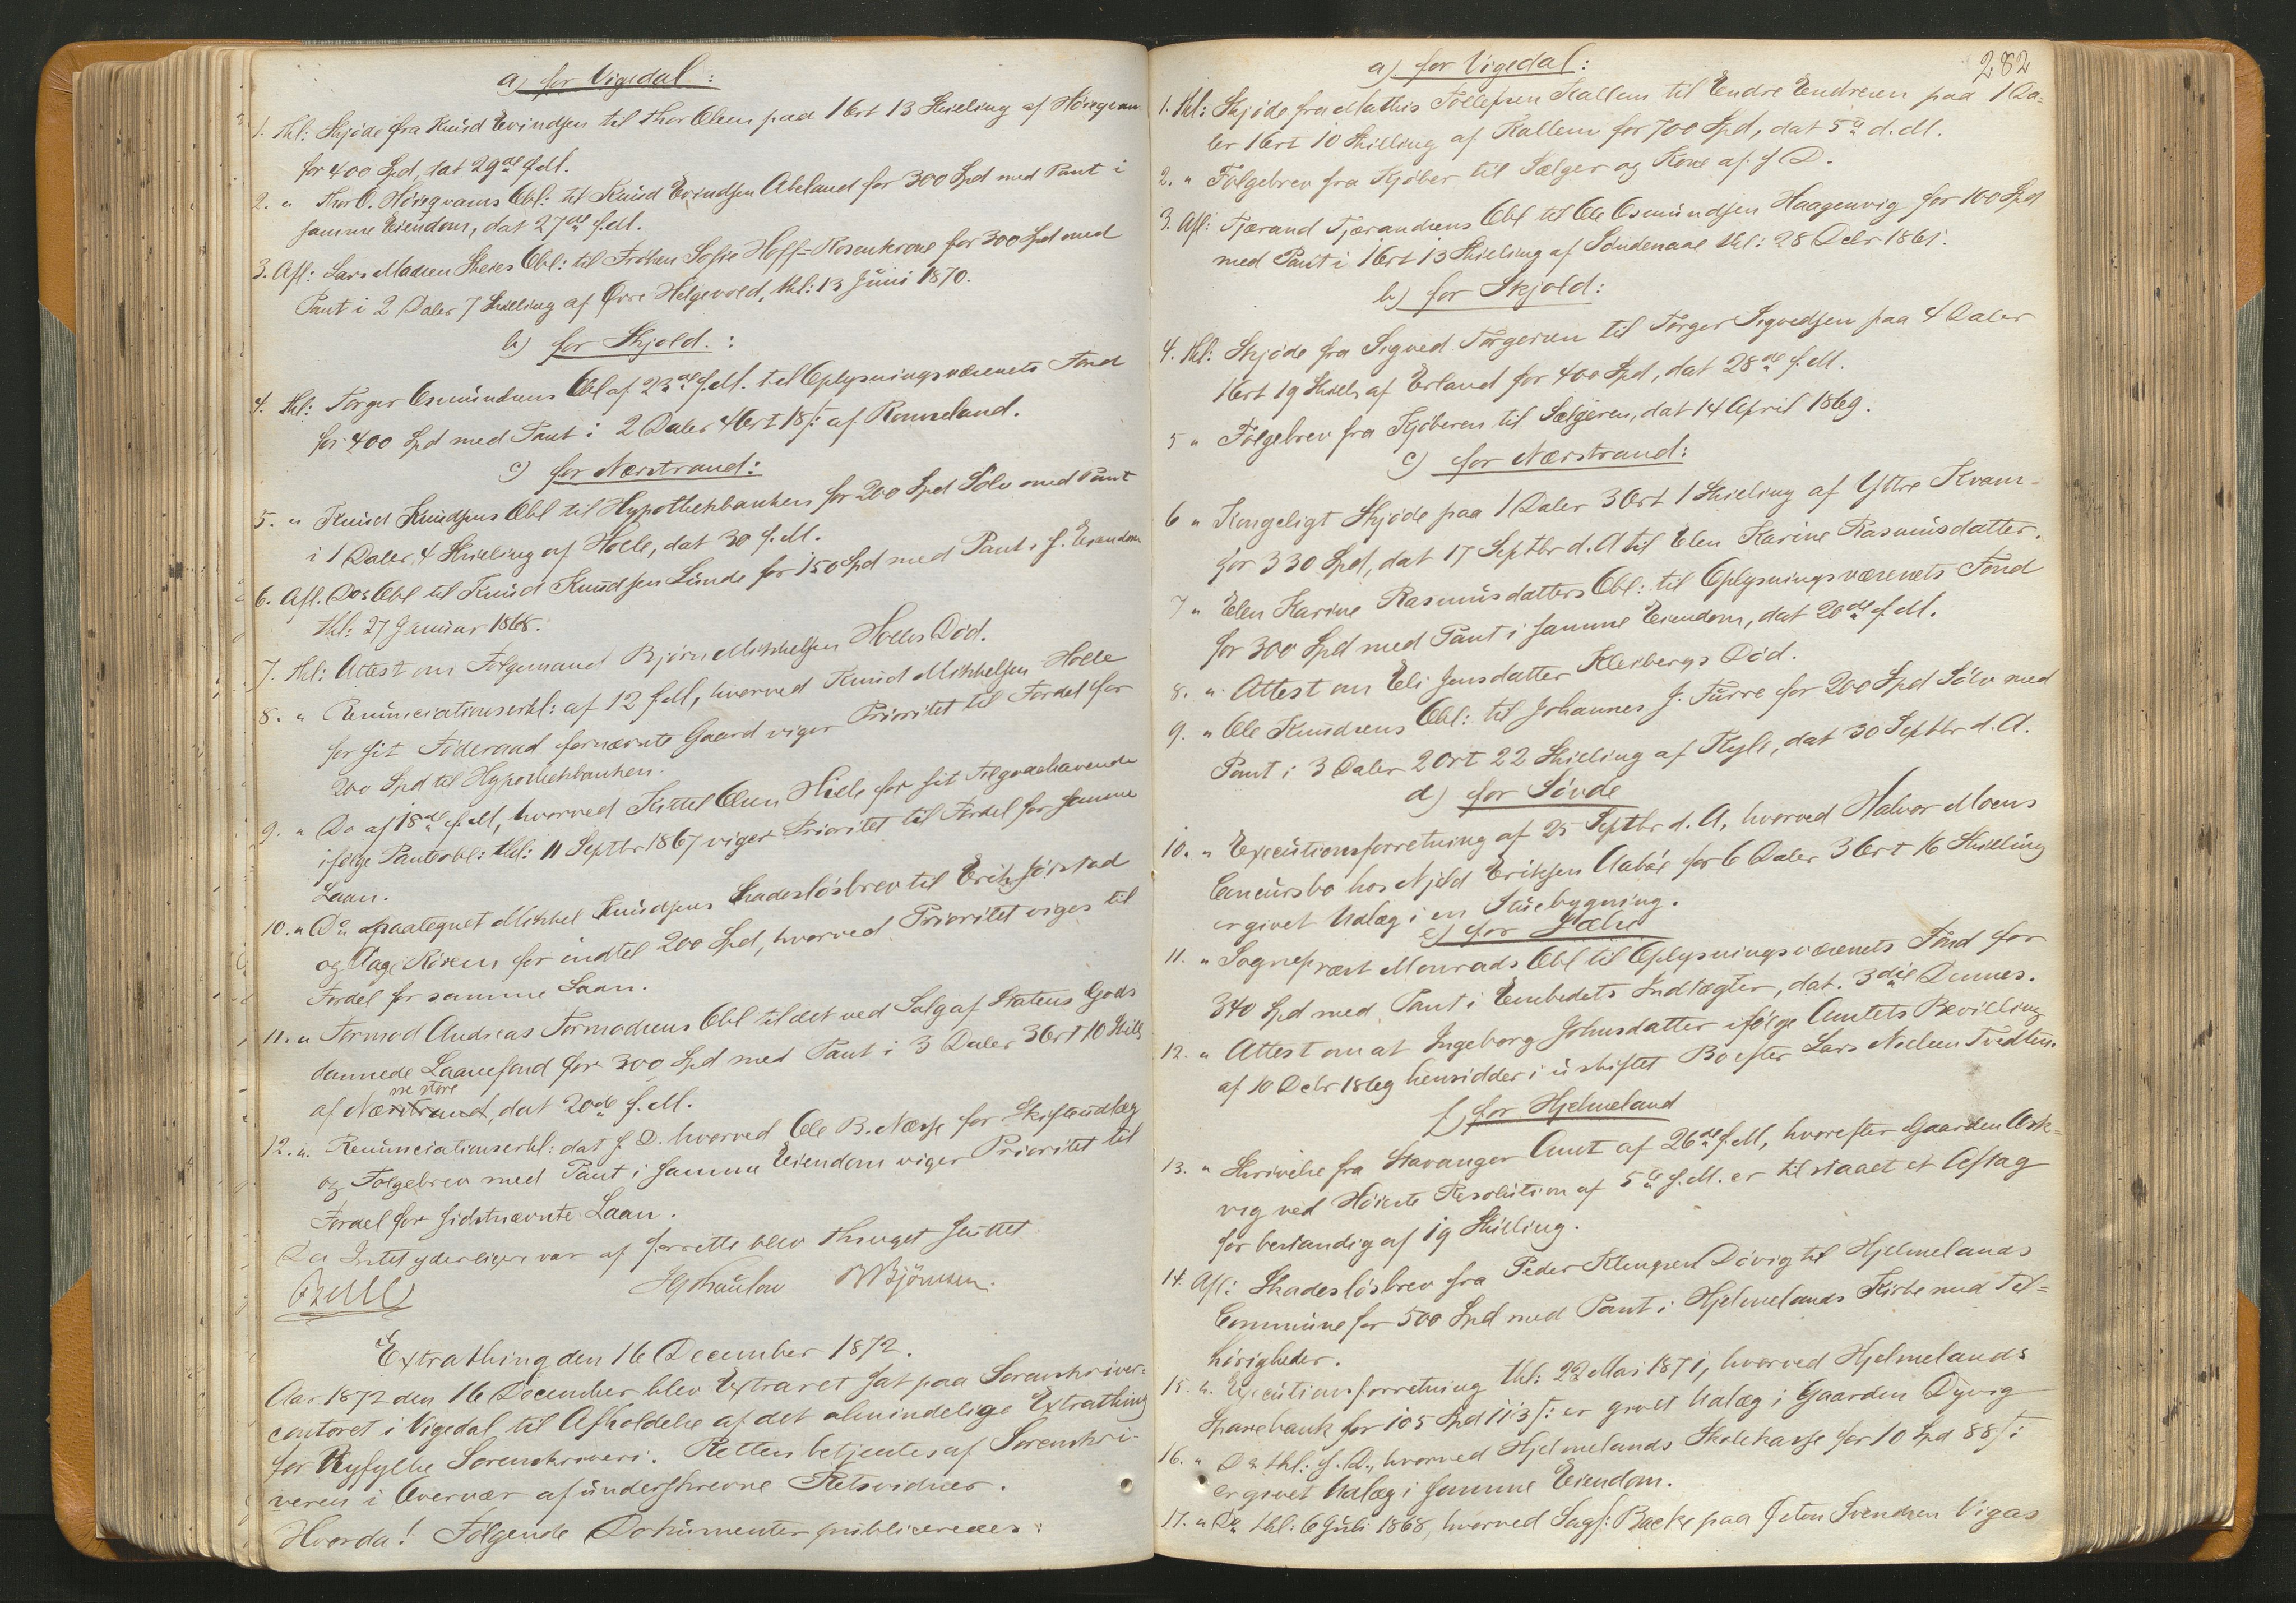 a) for Vigedal:
1. thl: Skjöde fra Knud Evindsen til Thor Olsen paa 1 Ort 13 Skilling af Høiegvam
for 400 Spd, dat 29de f.M.
2. " Thor O. Høiegvams Obl: til Knud Evindsen Abeland for 300 Spd med Pant i
samme Eiendom, dat 27de f.M.
3. Afl: Lars Madsen Skeies Obl: til Frøken Sofie Hoff-Rosenkrone for 300 Spd med
Pant i 2 Daler 7 Skilling af Øvre Helgevold, thl: 13 Juni 1870.
b) for Skjold.:
4. thl: Torger Osmundsens Obl af 23de f.M. til Oplysningsvæsenets Fond
for 400 Spd med Pant i 2 Daler 4 Ort 18 s: af Romseland.
c) for Nærstrand:
5. " Knud Knudsens Obl til Hypothekbanken for 200 Spd Sölv med Pant
i 1 Daler 4 Skilling af Holle, dat 30 f.M.
6. Afl. Dos Obl til Knud Knudsen Lunde for 150 Spd med Pant i s. Eiendom
thl: 27 Januar 1868.
7. thl: Attest om Folgemand Björn Mikkelsen Holles Död.
8. " Renunciationserkl: af 12 f.M, hvorved Knud Mikkelsen Holle
for sit Föderaad fornævnte Gaard viger Prioritet til Fordel for
200 Spd til Hypothekbanken.
9. " Do af 18de f.M, hvorved Kittel Olsen Hiele for sit Tilgodehavende
ifölge Panteobl: thl: 11 Septbr 1867 viger Prioritet til Fordel for samme
Laan.
10. " Do paategnet Mikkel Knudsens Skadeslösbrev til Erik Jörstad
og Aage Rösen for indtil 200 Spd, hvorved Prioritet viges til
Fordel for samme Laan.
11. " Tormod Andreas Tormodsens Obl til det ved Salg af Statens Gods
dannede Laanefond for 300 Spd med Pant i 3 Daler 3 Ort 10 Skill
re store
af Nærstrand, dat 20de f.M.
12. " Renunciationserkl: dat s. D. hvorved Ole B. Næsse for Skifteudlæg
og Folgebrev med Pant i samme Eiendom viger Prioritet til
Fordel for sidstnævnte Laan.
Da Intet yderligere var at forrette blev Thinget sluttet
Björnsen.
Extrathing den 16 December 1872.
Aar 1872 den 16 December blev Extraret sat paa Sorenskriver-
contoret i Vigedal til Afholdelse af det almindelige Extrathing
for Ryfylke Sorenskriveri. Retten betjentes af Sorenskri-
veren i Overvær af underskrevne Retsvidner.
Hvorda! Fölgende Dokumenter publiceredes:
282
a) for Vigedal:
1. thl: Skjöde fra Mathis Tollefsen Kallem til Endre Endresen paa 1 Da-
ler 1 Ort 10 Skilling af Kallem for 700 Spd, dat 5te d.M.
2. " Fölgebrev fra Kjöber til Sælger og Kone af s D.
3. Afl: Tjærand Tjærandsens Obl til Ole Osmundsen Haagenvig for 100 Spd
med Pant i 1 Ort 13 Skilling af Söndenaae thl: 28 Debr 1861.
b) for Skjold:
4. thl: Skjöde fra Sigved Torgersen til Torger Sigvedsen paa 4 Daler
1 Ort 19 Skill af Erland for 400 Spd, dat 28de f.M.
5 " Fölgebrev fra Kjöberen til Sælgeren, dat 14 April 1869.
c) for Nærstrand:
6 " Kongeligt Skjöde paa 1 Daler 3 Ort 1 Skilling af Yttre Kvam-
for 330 Spd, dat 17 Septbr d.A til Elen Karine Rasmusdatter.
7 " Elen Karine Rasmusdatters Obl: til Oplysningsvæsenets Fond
for 300 Spd med Pant i samme Eiendom, dat 20de f.M.
8. " Attest om Eli Jensdatter Kleibergs Död.
9. " Ole Knudsens Obl: til Johannes J. Furre for 200 Spd Sölv med
Pant i 3 Daler 2 Ort 22 Skilling af Kyle, dat 30 Septbr d.A.
d) for Sövde
10. " Executionsforretning af 25 Septbr d.A, hvorved Halvor Moens
Concursbo hos Njeld Eriksen Aabøe for 6 Daler 3 Ort 16 Skilling
er givet Udlæg i en Stuebygning.
e) for Jælse
11. " Sogneprest Monrads Obl til Oplysningsvæsenets Fond for
340 Spd med Pant i Embedets Indtægter, dat. 3die Dennes.
12. " Attest om at Ingeborg Johnsdatter ifölge Amtets Bevilling
af 10 Debr 1869 hensidder i uskiftet Bo efter Lars Nielsen Tvedten.
f) for Hjelmeland
13. " Skrivelse fra Stavanger Amt af 26de f.M, hvorefter Gaarden Ask-
vig ved Höieste Resolution af 5te f.M. er tilstaaet et Aftag
for bestandig af 19 Skilling.
14. Afl: Skadeslösbrev fra Peder Klungsen Dövig til Hjelmelands
Commune for 500 Spd med Pant i Hjelmelands Kirke med Til-
hörigheder.
15. " Executionsforretning thl: 22 Mai 1871, hvorved Hjelmelands
Sparebank for 105 Spd 113 s: er givet Udlæg i Gaarden Dyvig
16. " Do thl: s. D., hvorved Hjelmelands Skolekasse for 10 Spd 88 s:
er givet Udlæg i samme Eiendom.
17. " Do thl: 6 Juli 1868, hvorved Sagf: Backe paa Svendsen Vigas